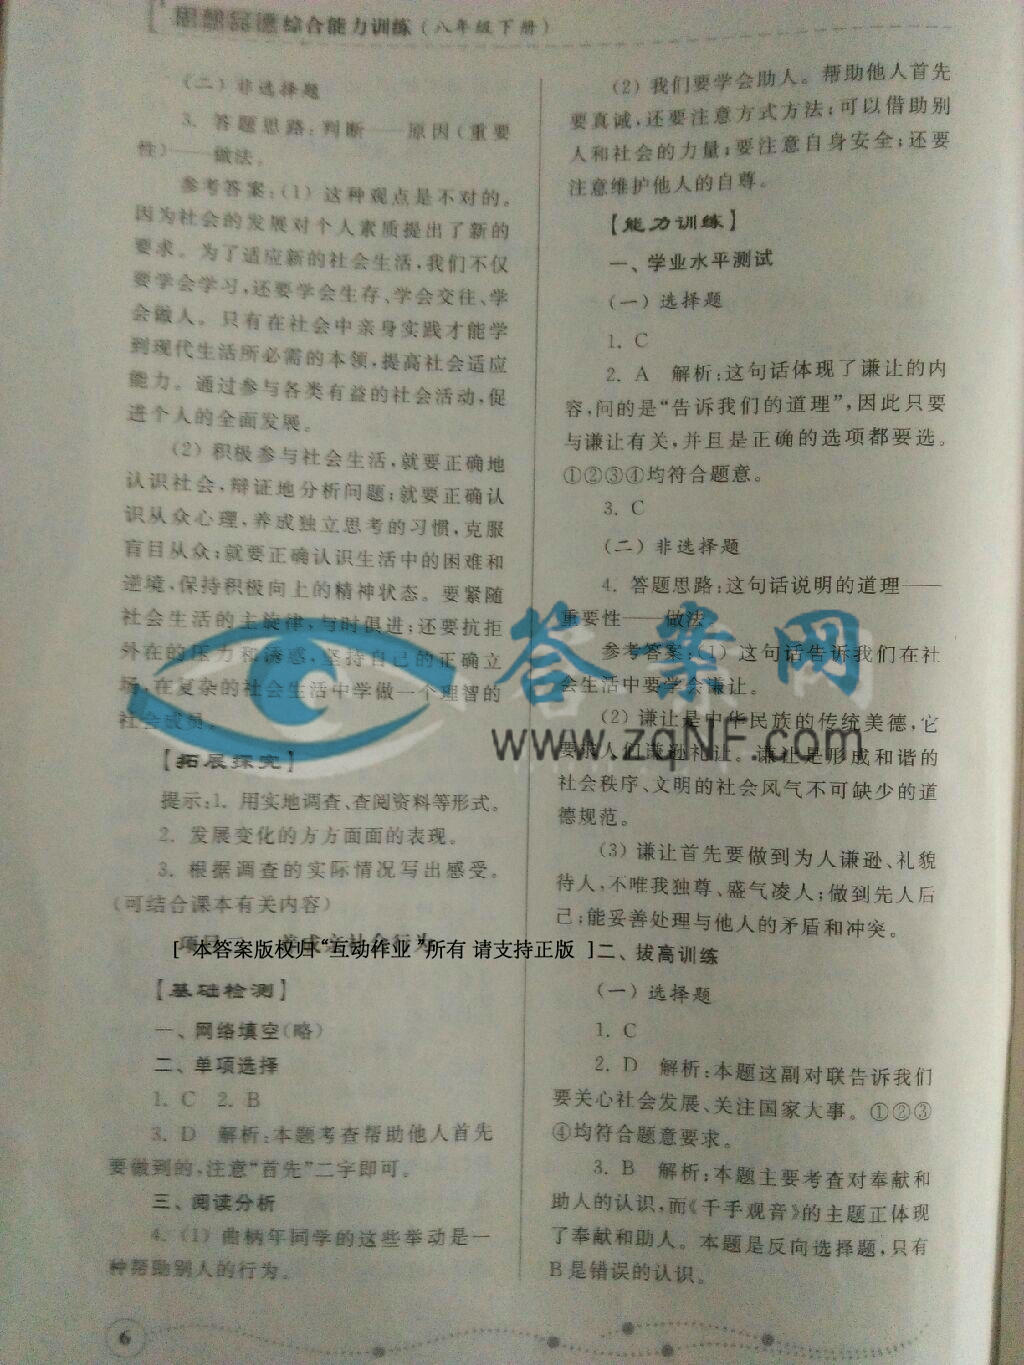 思想品德综合能力训练(八年级下册)
(二)非选择题
3. 答题思路:判断——原因(重要
性)——做法。
参考答案:(1)这种观点是不对的。
因为社会的发展对个人素质提出了新的
要求。为了适应新的社会生活,我们不仅
要学会学习,还要学会生存、学会交往、学
会做人。只有在社会中亲身实践才能学
到现代生活所必需的本领,提高社会适应
能力。通过参与各类有益的社会活动,促
进个人的全面发展。
(2)积极参与社会生活,就要正确地
认识社会,辩证地分析问题;就要正确认
识从众心理,养成独立思考的习惯,克服
盲目从众;就要正确认识生活中的困难和
逆境,保持积极向上的精神状态。要紧随
社会生活的主旋律,与时俱进;还要抗拒
外在的压力和诱惑,坚持自己的正确立
场,在复杂的社会生活中学做一个理智的
社会成员。
【拓展探究】
提示:1. 用实地调查、查阅资料等形式。
2. 发展变化的方方面面的表现。
3. 根据调查的实际情况写出感受。
(可结合课本有关内容)
[ 本答案版权归“互动作业 ”所有 请支持正版 ]
【基础检测】
一、网络填空(略)
二、单项选择
1. C 2. B
3. D 解析:本题考查帮助他人首先
要做到的,注意“首先”二字即可。
三、阅读分析
4. (1)曲柄年同学的这些举动是一
种帮助别人的行为。
6
(2)我们要学会助人。帮助他人首先
要真诚,还要注意方式方法;可以借助别
人和社会的力量;要注意自身安全;还要
注意维护他人的自尊。
【能力训练】
一、学业水平测试
(一)选择题
1. C
2. A 解析:这句话体现了谦让的内
容,问的是“告诉我们的道理”,因此只要
与谦让有关,并且是正确的选项都要选。
①②③④均符合题意。
3. C
(二)非选择题
4. 答题思路:这句话说明的道理——
重要性——做法
参考答案:(1)这句话告诉我们在社
会生活中要学会谦让。
(2)谦让是中华民族的传统美德,它
要求人们谦逊礼让。谦让是形成和谐的
社会秩序、文明的社会风气不可缺少的道
德规范。
(3)谦让首先要做到为人谦逊、礼貌
待人,不唯我独尊、盛气凌人;做到先人后
己;能妥善处理与他人的矛盾和冲突。
二、拔高训练
(一)选择题
1. C
2. D 解析:本题这副对联告诉我们
要关心社会发展、关注国家大事。①②③
④均符合题意要求。
3. B 解析:本题主要考查对奉献和
助人的认识,而《千手观音》的主题正体现
了奉献和助人。本题是反向选择题,只有
B是错误的认识。
答案网
www.zqNF.com